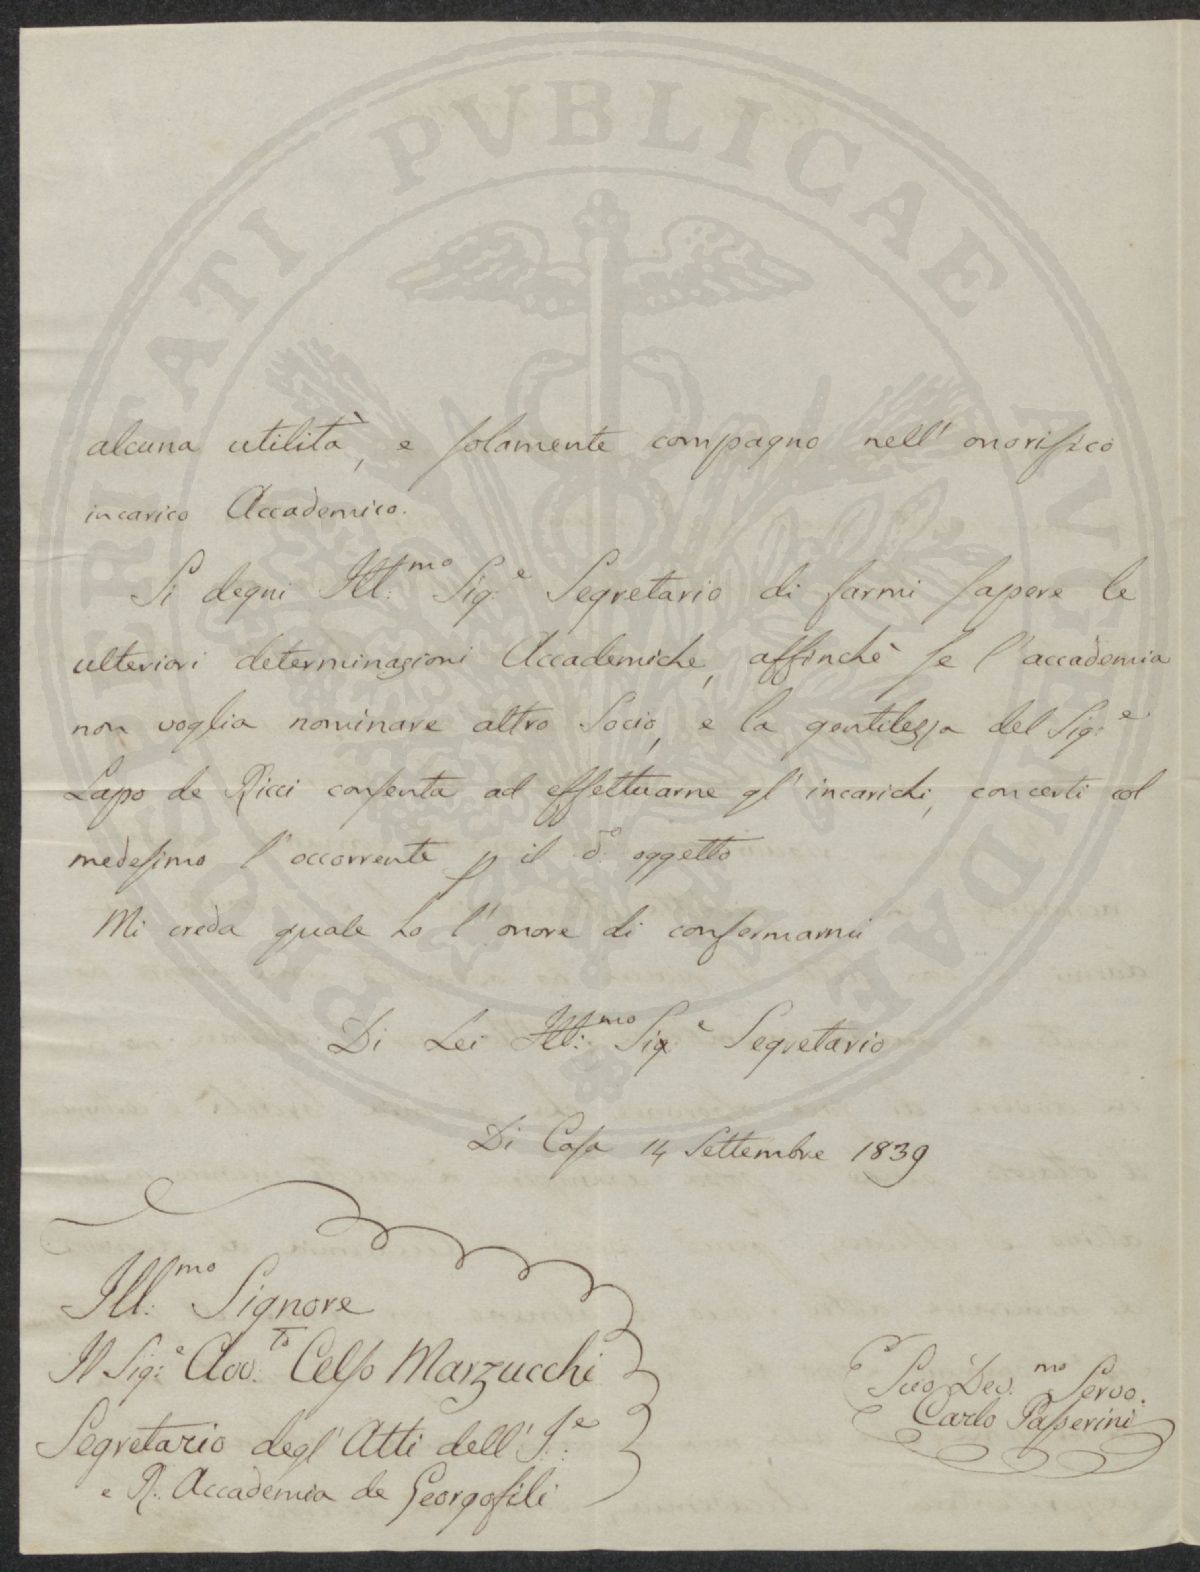 PROSPERITATI PVBLICAE AVGENDAE
alcuna utilità, e solamente compagno nell'onorifico
incarico Accademico.
Si degni Ill:mo Sig:e Segretario di farmi sapere le
ulteriori determinazioni Accademiche, affinchè se l'accademia
non voglia nominare altro Socio, e la gentilezza del Sig:e
Lapo de Ricci consenta ad effettuarne gl'incarichi, concerti col
medesimo l'occorrente p il do: oggetto
Mi creda quale ho l'onore di confermarmi
Di Lei Ill:mo Sig:e Segretario
Di Casa 14 Settembre 1839
Ill:mo Signore
Il Sig:e Avv:to Celso Marzucchi
Segretario degl'Atti dell'I:e
e R: Accademia de Georgofili
Suo Dev:mo Servo.
Carlo Passerini